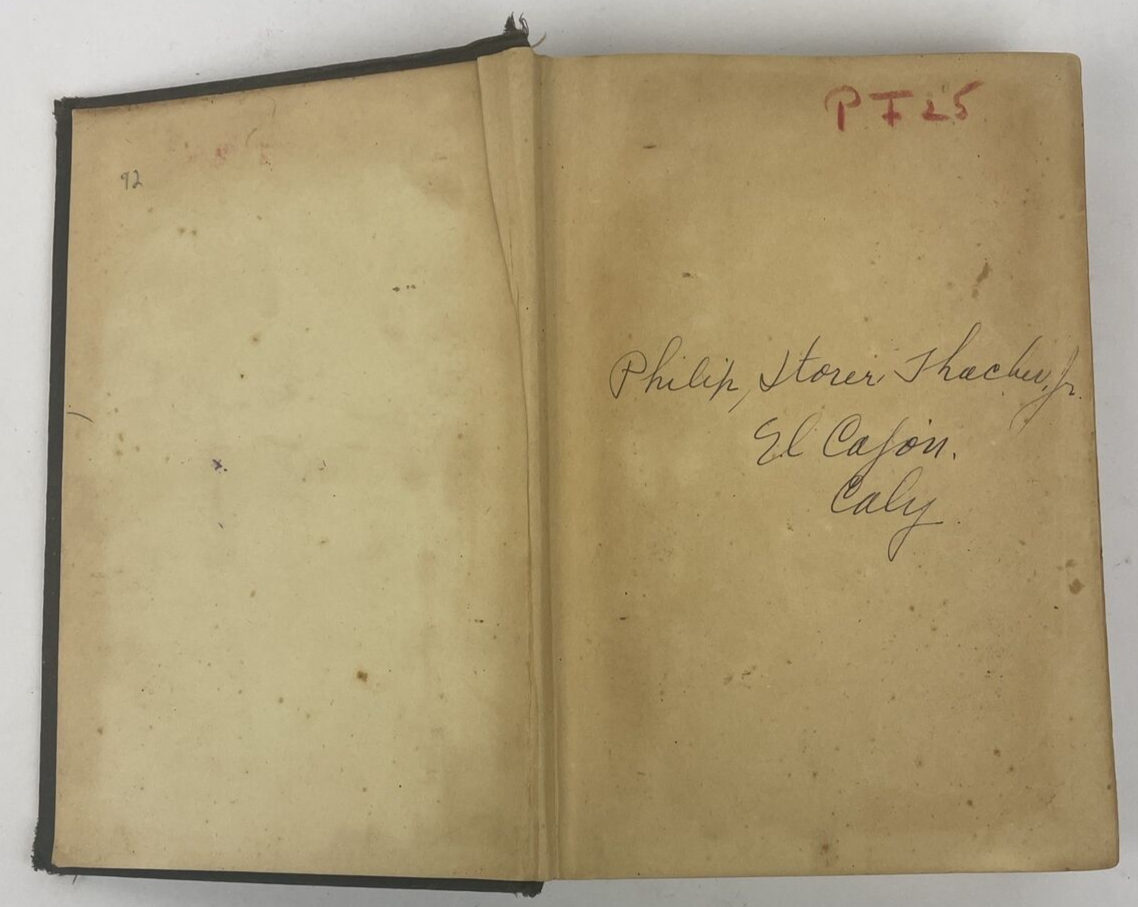 92
P T 25
Philip, Storer Thacher, Jr.
El Cajon.
Caly